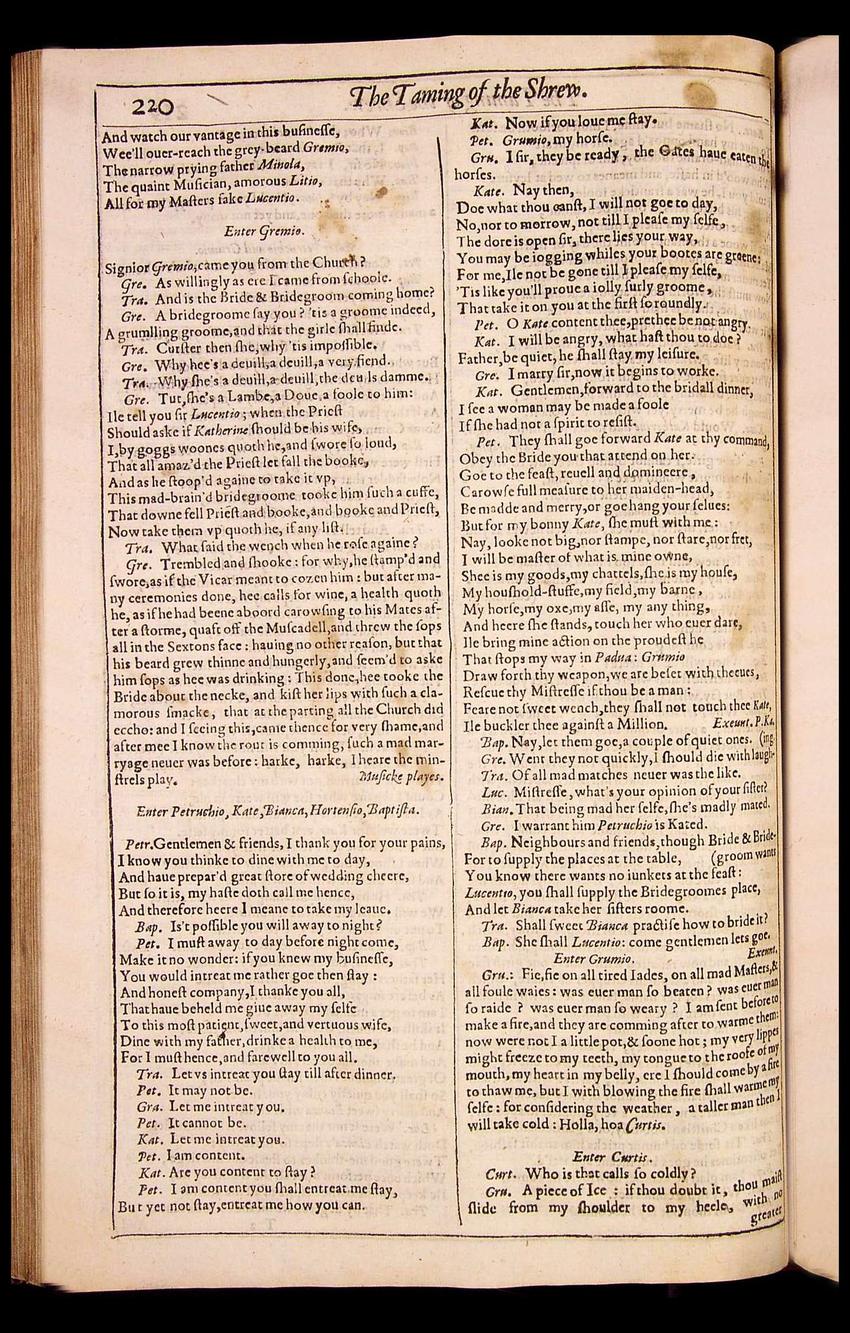 220
The Taming of the Shrew.
And watch our vantage in this buſineſſe,
Wee'll ouer-reach the grey-beard Gremio,
The narrow prying father Minola,
The quaint Muſician, amorous Litio,
All for my Maſters ſake Lucentio.
Enter Gremio.
Signior Gremio, came you from the Church?
Gre. As willingly as ere I came from ſchoole.
Tra. And is the Bride & Bridegroom coming home?
Gre. A bridegroome ſay you? 'tis a groome indeed,
A grumlling groome, and that the girle ſhall finde.
Tra. Curſter then ſhe, why 'tis impoſſible.
Gre. Why hee's a deuill, a deuill, a very fiend.
Tra. Why ſhe's a deuill, a deuill, the deuils damme.
Gre. Tut, ſhe's a Lambe, a Doue, a foole to him:
Ile tell you ſir Lucentio; when the Prieſt
Should aske if Katherine ſhould be his wife,
I, by goggs woones quoth he, and ſwore ſo loud,
That all amaz'd the Prieſt let fall the booke,
And as he ſtoop'd againe to take it vp,
This mad-brain'd bridegroome tooke him ſuch a cuffe,
That downe fell Prieſt and booke, and booke and Prieſt,
Now take them vp quoth he, if any liſt.
Tra. What ſaid the wench when he roſe againe?
Gre. Trembled and ſhooke: for why, he ſtamp'd and
ſwore, as if the Vicar meant to cozen him: but after ma-
ny ceremonies done, hee calls for wine, a health quoth
he, as if he had beene aboord carowſing to his Mates af-
ter a ſtorme, quaft off the Muſcadell, and threw the ſops
all in the Sextons face: hauing no other reaſon, but that
his beard grew thinne and hungerly, and ſeem'd to aske
him ſops as hee was drinking: This done, hee tooke the
Bride about the necke, and kiſt her lips with ſuch a cla-
morous ſmacke, that at the parting all the Church did
eccho: and I ſeeing this, came thence for very ſhame, and
after mee I know the rout is comming, ſuch a mad mar-
ryage neuer was before: harke, harke, I heare the min-
ſtrels play. Muſicke playes.
Enter Petruchio, Kate, Bianca, Hortenſio, Baptiſta.
Petr. Gentlemen & friends, I thank you for your pains,
I know you thinke to dine with me to day,
And haue prepar'd great ſtore of wedding cheere,
But ſo it is, my haſte doth call me hence,
And therefore heere I meane to take my leaue.
Bap. Is't poſſible you will away to night?
Pet. I muſt away to day before night come,
Make it no wonder: if you knew my buſineſſe,
You would intreat me rather goe then ſtay:
And honeſt company, I thanke you all,
That haue beheld me giue away my ſelfe
To this moſt patient, ſweet, and vertuous wife,
Dine with my father, drinke a health to me,
For I muſt hence, and farewell to you all.
Tra. Let vs intreat you ſtay till after dinner.
Pet. It may not be.
Gra. Let me intreat you.
Pet. It cannot be.
Kat. Let me intreat you.
Pet. I am content.
Kat. Are you content to ſtay?
Pet. I am content you ſhall entreat me ſtay,
But yet not ſtay, entreat me how you can.
Kat. Now if you loue me ſtay.
Pet. Grumio, my horſe.
Gru. I ſir, they be ready, the Oates haue eaten the
horſes.
Kate. Nay then,
Doe what thou canſt, I will not goe to day,
No, nor to morrow, not till I pleaſe my ſelfe,
The dore is open ſir, there lies your way,
You may be iogging whiles your bootes are greene:
For me, Ile not be gone till I pleaſe my ſelfe,
'Tis like you'll proue a iolly ſurly groome,
That take it on you at the firſt ſo roundly.
Pet. O Kate content thee, prethee be not angry.
Kat. I will be angry, what haſt thou to doe?
Father, be quiet, he ſhall ſtay my leiſure.
Gre. I marry ſir, now it begins to worke.
Kat. Gentlemen, forward to the bridall dinner,
I ſee a woman may be made a foole
If ſhe had not a ſpirit to reſiſt.
Pet. They ſhall goe forward Kate at thy command,
Obey the Bride you that attend on her.
Goe to the feaſt, reuell and domineere,
Carowſe full meaſure to her maiden-head,
Be madde and merry, or goe hang your ſelues:
But for my bonny Kate, ſhe muſt with me:
Nay, looke not big, nor ſtampe, nor ſtare, nor fret,
I will be maſter of what is mine owne,
Shee is my goods, my chattels, ſhe is my houſe,
My houſhold-ſtuffe, my field, my barne,
My horſe, my oxe, my aſſe, my any thing,
And heere ſhe ſtands, touch her who euer dare,
Ile bring mine action on the proudeſt he
That ſtops my way in Padua: Grumio
Draw forth thy weapon, we are beſet with theeues,
Reſcue thy Miſtreſſe if thou be a man:
Feare not ſweet wench, they ſhall not touch thee Kate,
Ile buckler thee againſt a Million. Exeunt. P. Ka.
Bap. Nay, let them goe, a couple of quiet ones. (ing.
Gre. Went they not quickly, I ſhould die with laugh-
Tra. Of all mad matches neuer was the like.
Luc. Miſtreſſe, what's your opinion of your ſiſter?
Bian. That being mad her ſelfe, ſhe's madly mated.
Gre. I warrant him Petruchio is Kated.
Bap. Neighbours and friends, though Bride & Bride-
For to ſupply the places at the table, (groom wants
You know there wants no iunkets at the feaſt:
Lucentio, you ſhall ſupply the Bridegroomes place,
And let Bianca take her ſiſters roome.
Tra. Shall ſweet Bianca practiſe how to bride it?
Bap. She ſhall Lucentio: come gentlemen lets goe.
Enter Grumio. Exeunt.
Gru.: Fie, fie on all tired Iades, on all mad Maſters, &
all foule waies: was euer man ſo beaten? was euer man
ſo raide? was euer man ſo weary? I am ſent before to
make a fire, and they are comming after to warme them:
now were not I a little pot, & ſoone hot; my very lippes
might freeze to my teeth, my tongue to the roofe of my
mouth, my heart in my belly, ere I ſhould come by a fire
to thaw me, but I with blowing the fire ſhall warme my
ſelfe: for conſidering the weather, a taller man then I
will take cold: Holla, hoa Curtis.
Enter Curtis.
Curt. Who is that calls ſo coldly?
Gru. A piece of Ice: if thou doubt it, thou maiſt
ſlide from my ſhoulder to my heele, with no
greater